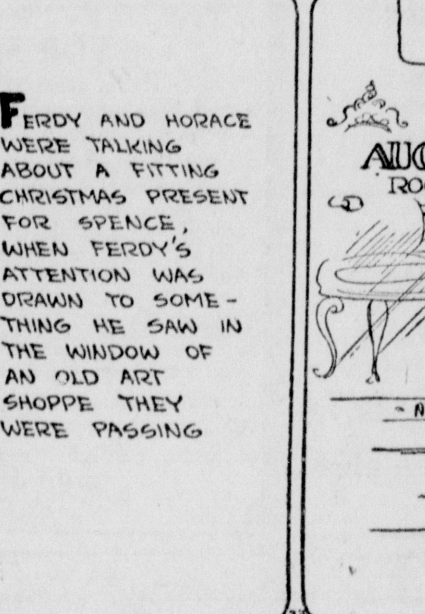 FERDY AND HORACE
WERE TALKING
ABOUT A FITTING
CHRISTMAS PRESENT
FOR SPENCE,
WHEN FERDY'S
ATTENTION WAS
DRAWN TO SOME-
THING HE SAW IN
THE WINDOW OF
AN OLD ART
SHOPPE THEY
WERE PASSING